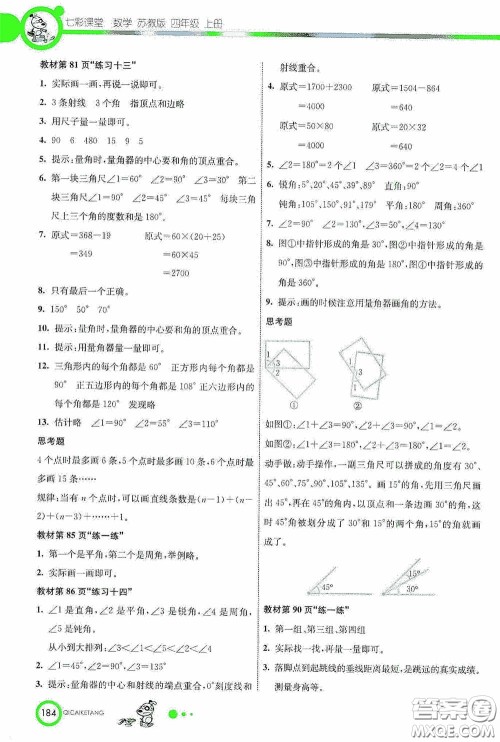 七彩课堂 数学 苏教版 四年级 上册
教材第 81 页“练习十三”
1. 实际画一画,再说一说即可。
2. 3 条射线 3 个角 指顶点和边略
3. 用尺子量一量即可。
4. 90 6 480 15 9 5
5. 提示:量角时,量角器的中心要和角的顶点重合。
6. 第一块三角尺∠1=60° ∠2=90° ∠3=30° 第二
块三角尺∠1=90° ∠2=45° ∠3=45° 每块三角
尺上三个角的度数和是 180°。
7. 原式=368-19 原式=60×(20+25)
=349 =60×45
=2700
8. 只有最后一个正确。
9. 150° 50° 70°
10. 提示:量角时,量角器的中心要和角的顶点重合。
11. 提示:用量角器量一量即可。
12. 三角形内的每个角都是 60° 正方形内每个角都是
90° 正五边形内的每个角都是 108° 正六边形内的
每个角都是 120° 发现略
13. 估计略 ∠1=90° ∠2=60° ∠3=135°
思考题
4 个点时最多画 6 条,5 个点时最多画 10 条,6 个点时
最多画 15 条……
规律:当有 n 个点时,可以画直线条数是(n-1)+(n-
2)+(n-3)+……+3+2+1。
教材第 85 页“练一练”
1. 第一个是平角,第二个是周角,举例略。
2. 实际画一画即可。
教材第 86 页“练习十四”
1. ∠1 是直角,∠2 是平角,∠3 是锐角,∠4 是周角,
∠5 是钝角。
从小到大排列:∠3<∠1<∠5<∠2<∠4
2. ∠1=40° ∠2=90° ∠3=135°
3. 提示:量角器的中心和射线的端点重合,0°刻度线和
射线重合。
4. 原式=1700+2300 原式=1504-864
=4000 =640
原式=50×80 原式=20×32
=4000 =640
5. ∠2=180°=2 个∠1 ∠3=360°=2 个∠2=4 个∠1
6. 锐角:5°,20°,45°,39°,89° 直角:90°
钝角:105°,150°,91°,179° 平角:180° 周角:360°
7. ∠2=90° ∠2=130° ∠3=50° ∠4=130°
8. 图①中指针形成的角是 30°,图②中指针形成的角
是 90°,图③中指针形成的角是 180°,图④中指针形
成的角是 360°。
9. 提示:画的时候注意用量角器画角的方法。
思考题
1 3 2
1 3 2
① ②
如图①:∠1+∠3=90°,∠2+∠3=90°,∠1=∠2。
如图②:∠1+∠3=180°,∠2+∠3=180°,∠1=∠2。
动手做:动手操作,一副三角尺可以拼成的角度有 30°、
45°、60°、75°、90°、105°、135°、150°、180°。先用三角尺
画出 45°,再在 45°的角内,以顶点和一条边画 30°的角,
这时 45°角被划分成了 30°和 15°的两个角,两个角均
为 45°以内的角。
45° 15° 30°
教材第 90 页“练一练”
1. 第一组、第三组、第四组
2. 实际找一找,再用量一量即可。
3. 落脚点到起跳线的垂线距离最短,是跳远的真实成绩。
测量身高等。
184 QICAIKETANG